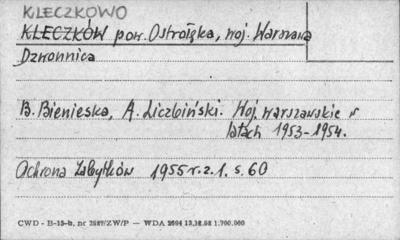 KLECZKOWO
KLECZKÓW pow. Ostrołęka, woj. Warszawa
Dzwonnica
B. Bieniecka, A. Liczbiński. Woj. warszawskie w
latach 1953-1954.
Ochrona Zabytków 1955 r. z. 1. s. 60
CWD - B-15-b, nr /ZW/P — WDA 1.700.000